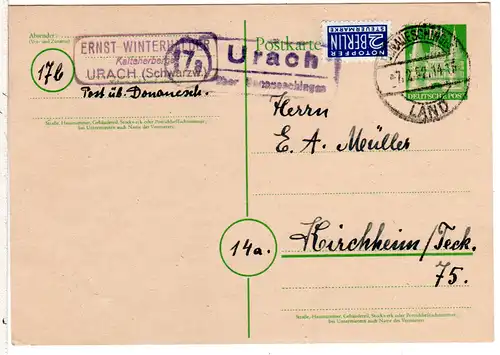 Absender:
ERNST WINTERHALDER
Kalteherberg
URACH (Schwarzw.)
17b
Post üb. Donauesch.
Straße, Hausnummer, Gebäudeteil, Stockwerk oder Postschließfachnummer,
bei Untermietern auch Name des Vermieters.
17a
Urach
über Donaueschingen
Postkarte
NOTOPFER
2 BERLIN
STEUERMARKE
LAND
DEUTSCHE POST
Herrn
E. A. Müller
14a.
Kirchheim/Teck.
75.
Straße, Hausnummer, Gebäudeteil, Stockwerk oder Postschließfachnummer,
bei Untermietern auch Name des Vermieters